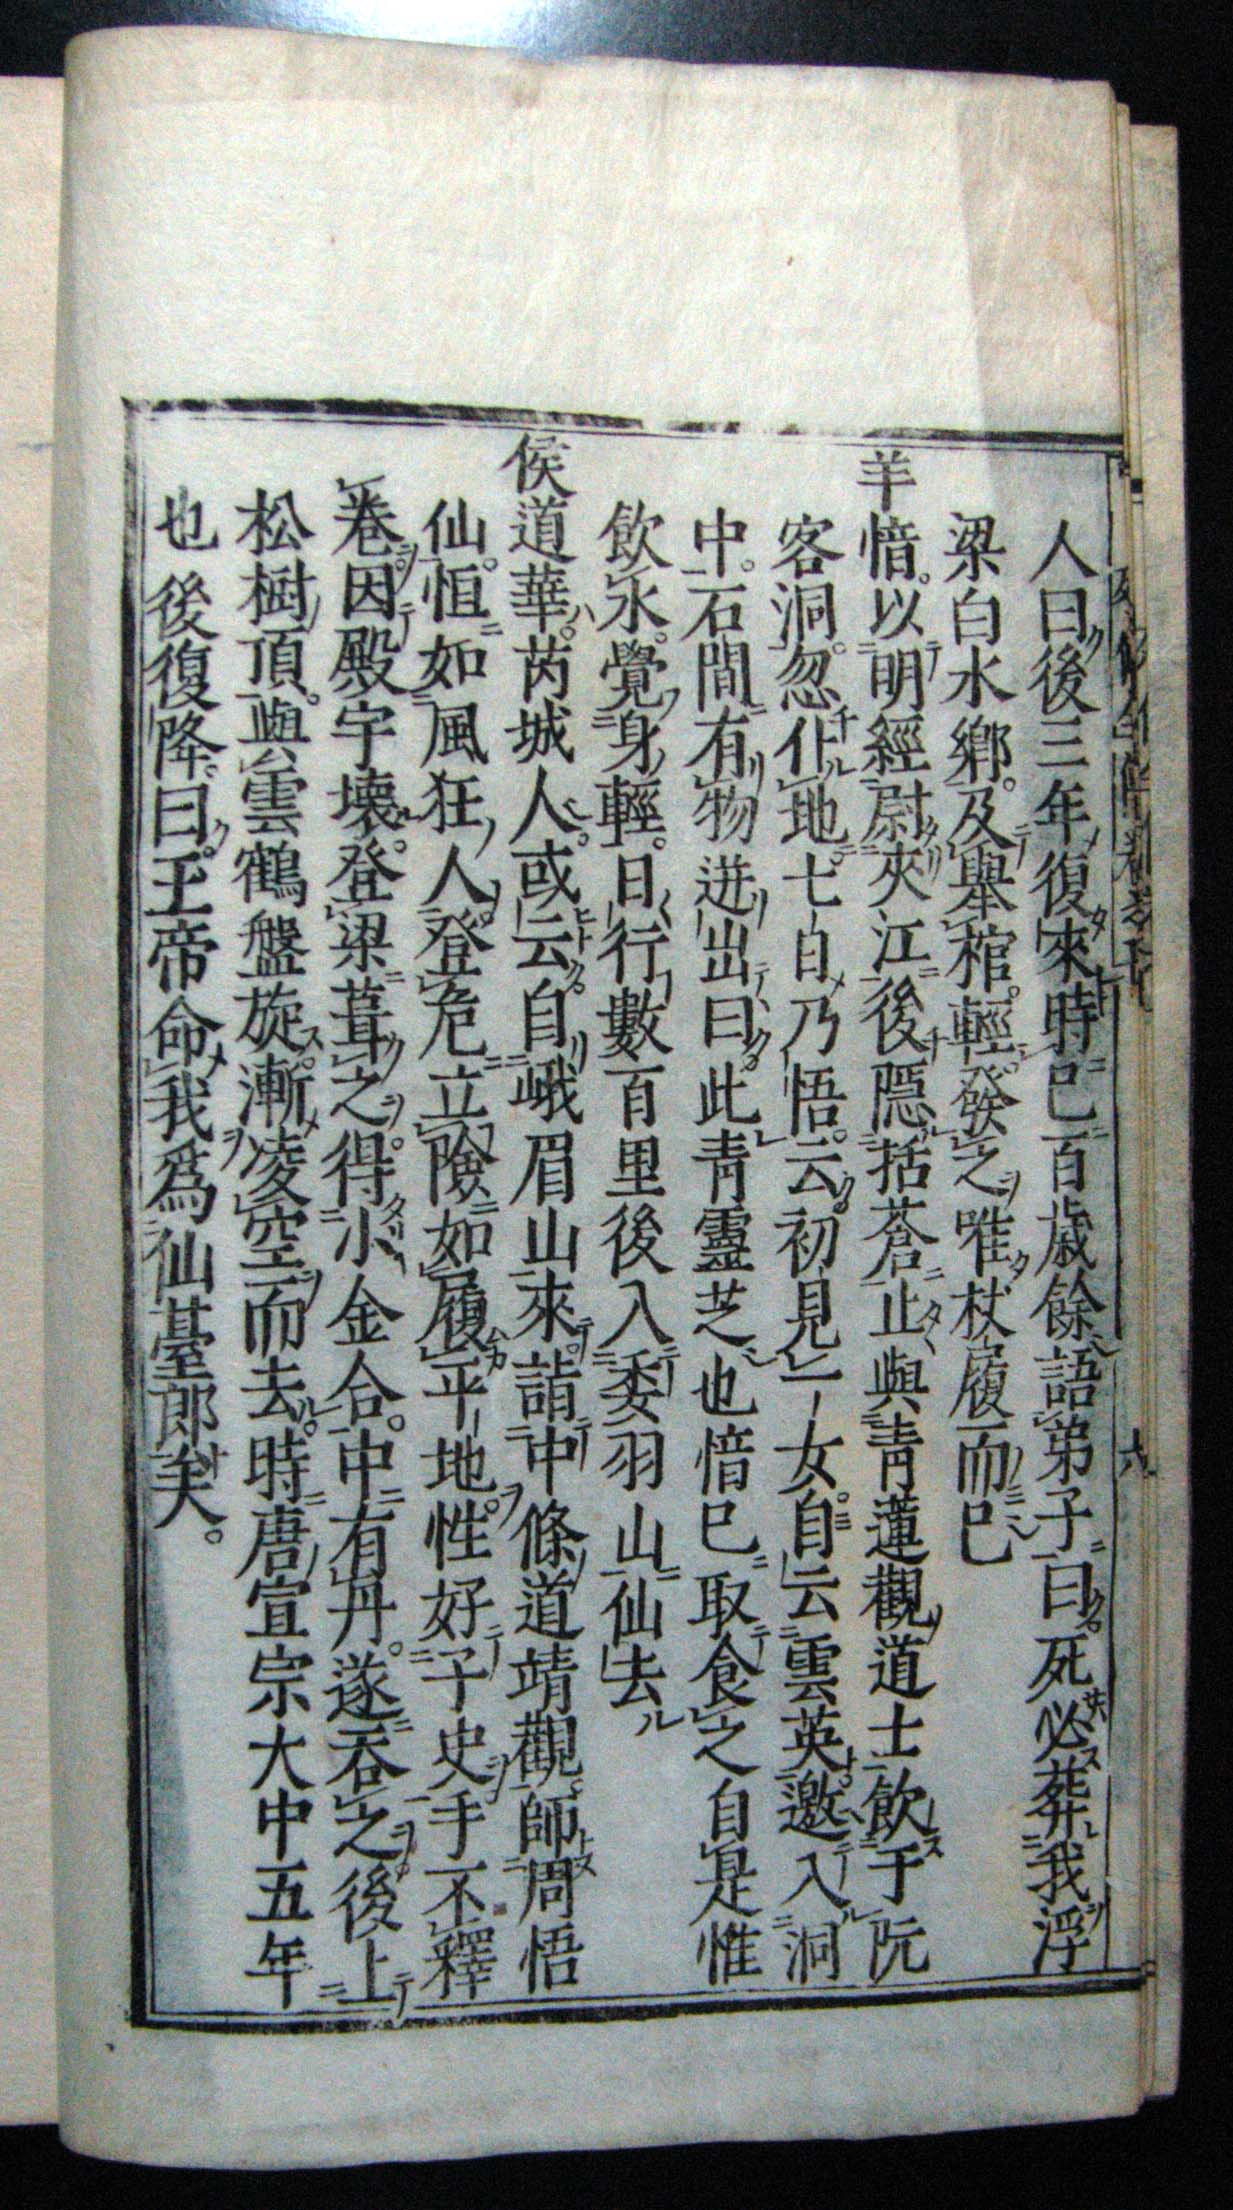 人曰後三年復來時已百歲餘語弟子曰死必葬我浮
梁白水鄉。及舉棺。輕發之唯杖履而已
羊愔。以明經尉夾江後隱括蒼止與青蓮觀道士飲于阮
客洞。忽仆地七日乃悟。云初見一女。自云雲英邀入洞
中。石間有物迸出曰此青靈芝也愔已取食之自是惟
飲水。覺身輕。日行數百里後入委羽山仙去
侯道華。芮城人。或云自峨眉山來詣中條道靖觀。師周悟
仙。恒如風狂人登危立險如履平地。性好子史手不釋
卷。因殿宇壞。登梁葺之得小金合。中有丹。遂吞之後上
松樹頂。與雲鶴盤旋漸凌空而去。時唐宣宗大中五年
也後復降。曰。玉帝命我為仙臺郎矣。